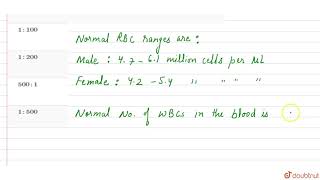 1:100
Normal RBC ranges are :
1:200
Male : 4.7 - 6.1 million cells per ul
500:1
Female : 4.2 - 5.4 " " " "
1:500
Normal No. of WBCs in the blood is
doubtnut